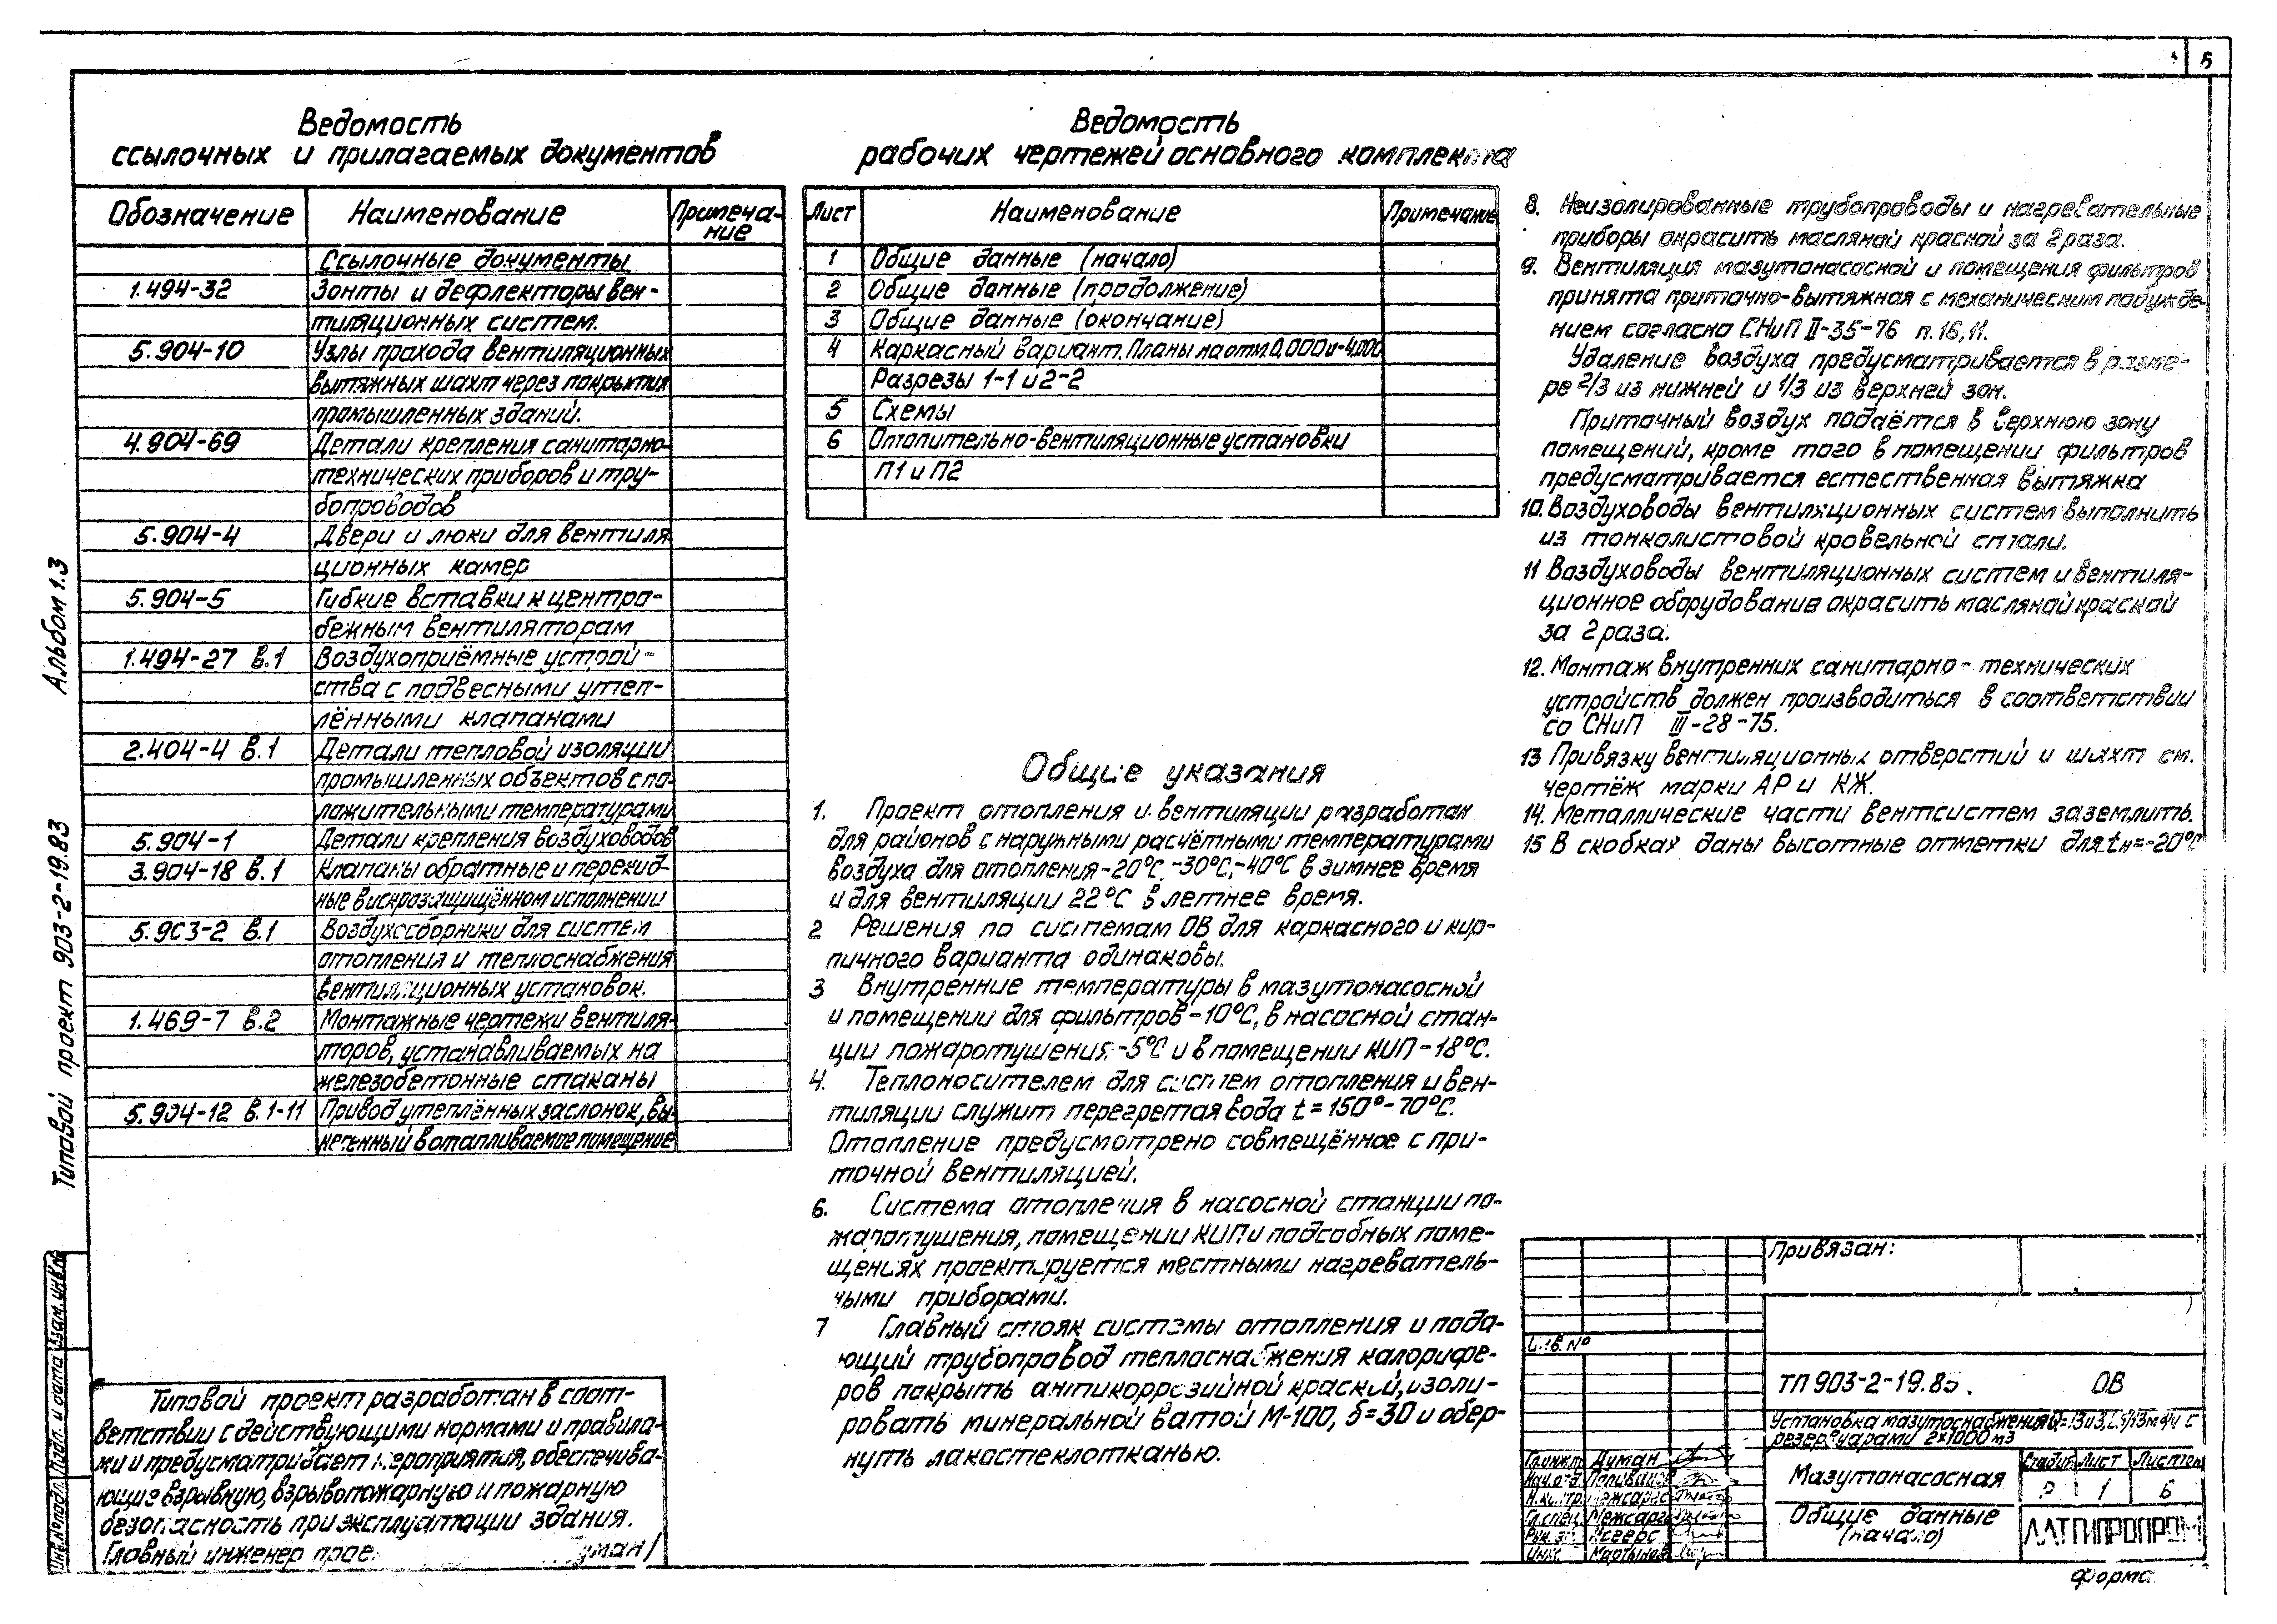 5
Ведомость
ссылочных и прилагаемых документов
Обозначение Наименование Примеча-
ние
Ссылочные документы
1.494-32 Зонты и дефлекторы вен-
тиляционных систем.
5.904-10 Узлы прохода вентиляционных
вытяжных шахт через покрытия
промышленных зданий.
4.904-69 Детали крепления санитарно-
технических приборов и тру-
бопроводов
5.904-4 Двери и люки для вентиля
ционных камер
5.904-5 Гибкие вставки к центро-
бежным вентиляторам
1.494-27 в.1 Воздухоприёмные устрой-
ства с подвесными утеп-
лёнными клапанами
2.404-4 в.1 Детали тепловой изоляции
промышленных объектов с по-
ложительными температурами
5.904-1 Детали крепления воздуховодов
3.904-18 в.1 Клапаны обратные и перекид-
ные в искрозащищённом исполнении
5.903-2 в.1 Воздухосборники для систем
отопления и теплоснабжения
вентиляционных установок.
1.469-7 в.2 Монтажные чертежи вентиля-
торов, устанавливаемых на
железобетонные стаканы
5.904-12 в.1-11 Привод утеплённых заслонок, вы-
несенный в отапливаемое помещение
Ведомость
рабочих чертежей основного комплекта
Лист Наименование Примечание
1 Общие данные (начало)
2 Общие данные (продолжение)
3 Общие данные (окончание)
4 Каркасный вариант. Планы на отм. 0,000 и -4,000
Разрезы 1-1 и 2-2
5 Схемы
6 Отопительно-вентиляционные установки
П1 и П2
Общие указания
1. Проект отопления и вентиляции разработан
для районов с наружными расчётными температурами
воздуха для отопления -20°С, -30°С, -40°С в зимнее время
и для вентиляции 22°С в летнее время.
2 Решения по системам ОВ для каркасного и кир-
пичного варианта одинаковы.
3 Внутренние температуры в мазутонасосной
и помещении для фильтров - 10°С, в насосной стан-
ции пожаротушения - 5°С и в помещении КИП - 18°С.
4. Теплоносителем для систем отопления и вен-
тиляции служит перегретая вода t = 150° - 70°С.
Отопление предусмотрено совмещённое с при-
точной вентиляцией.
6. Система отопления в насосной станции по-
жаротушения, помещении КИП и подсобных поме-
щениях проектируется местными нагреватель-
ными приборами.
7 Главный стояк системы отопления и пода-
ющий трубопровод теплоснабжения калорифе-
ров покрыть антикоррозийной краской, изоли-
ровать минеральной ватой М-100, δ=30 и обер-
нуть лакостеклотканью.
8. Неизолированные трубопроводы и нагревательные
приборы окрасить масляной краской за 2 раза.
9. Вентиляция мазутонасосной и помещения фильтров
принята приточно-вытяжная с механическим побужде-
нием согласно СНиП II-35-76 п.16,11.
Удаление воздуха предусматривается в разме-
ре 2/3 из нижней и 1/3 из верхней зон.
Приточный воздух подаётся в верхнюю зону
помещений, кроме того в помещении фильтров
предусматривается естественная вытяжка
10. Воздуховоды вентиляционных систем выполнить
из тонколистовой кровельной стали.
11 Воздуховоды вентиляционных систем и вентиля-
ционное оборудование окрасить масляной краской
за 2 раза.
12. Монтаж внутренних санитарно-технических
устройств должен производиться в соответствии
со СНиП III-28-75.
13 Привязку вентиляционных отверстий и шахт см.
чертёж марки АР и КЖ.
14. Металлические части вентсистем заземлить.
15 В скобках даны высотные отметки для tн=-20°С
Альбом 1.3
Типовой проект 903-2-19.83
Взам. инв.№
Подп. и дата
Инв.№ подл.
Типовой проект разработан в соот-
ветствии с действующими нормами и правила-
ми и предусматривает мероприятия, обеспечива-
ющие взрывную, взрывопожарную и пожарную
безопасность при эксплуатации здания.
Главный инженер
Привязан:
Инв. №
ТП 903-2-19.83. ОВ
Установка мазутоснабжения
резервуарами 2×1000 м3
Гл.инж.п Думан
Нач.отд
Н.контр
Гл.спец.
Рук.
Инж. Мартынов
Мазутонасосная
Стадия Лист Листов
Р 1 6
Общие данные
(начало)
ЛАТГИПРОПРОМ
форма